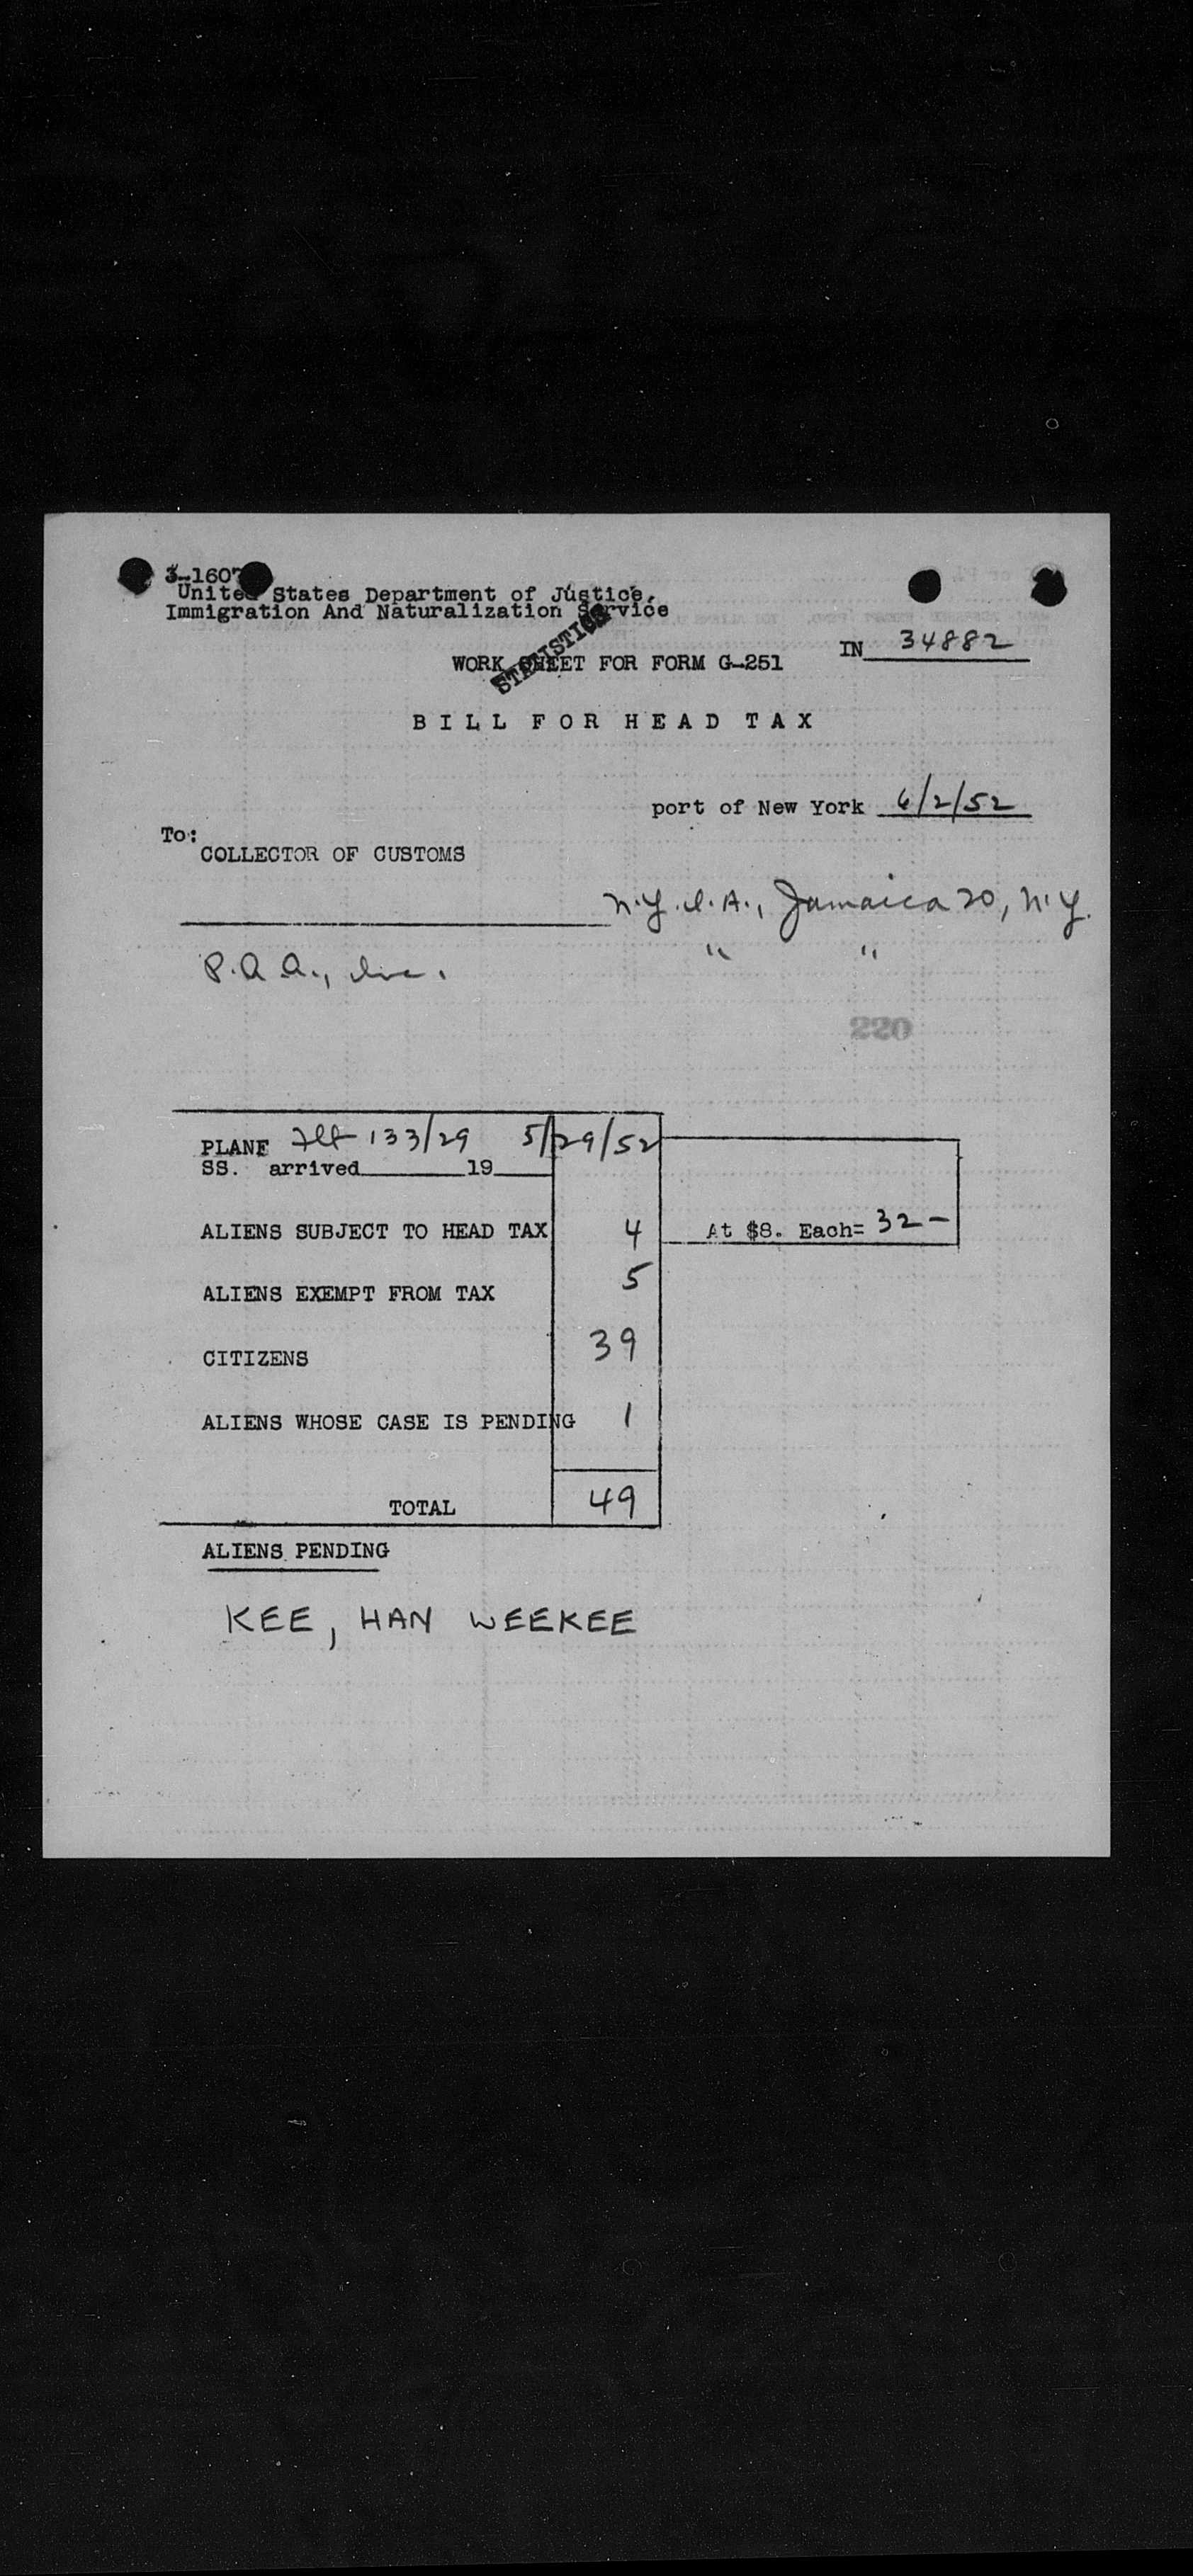 3-1607
United States Department of Justice,
Immigration And Naturalization Service
STATISTICS
IN 34882
WORK SHEET FOR FORM G-251
BILL FOR HEAD TAX
port of New York 6/2/52
To:
COLLECTOR OF CUSTOMS
N.Y.I.A., Jamaica 20, N.Y.
P.A.A., Inc. " "
220
PLANE Flt 133/29 5/29/52
SS. arrived 19
ALIENS SUBJECT TO HEAD TAX 4 At $8. Each= 32-
ALIENS EXEMPT FROM TAX 5
CITIZENS 39
ALIENS WHOSE CASE IS PENDING 1
TOTAL 49
ALIENS PENDING
KEE, HAN WEEKEE